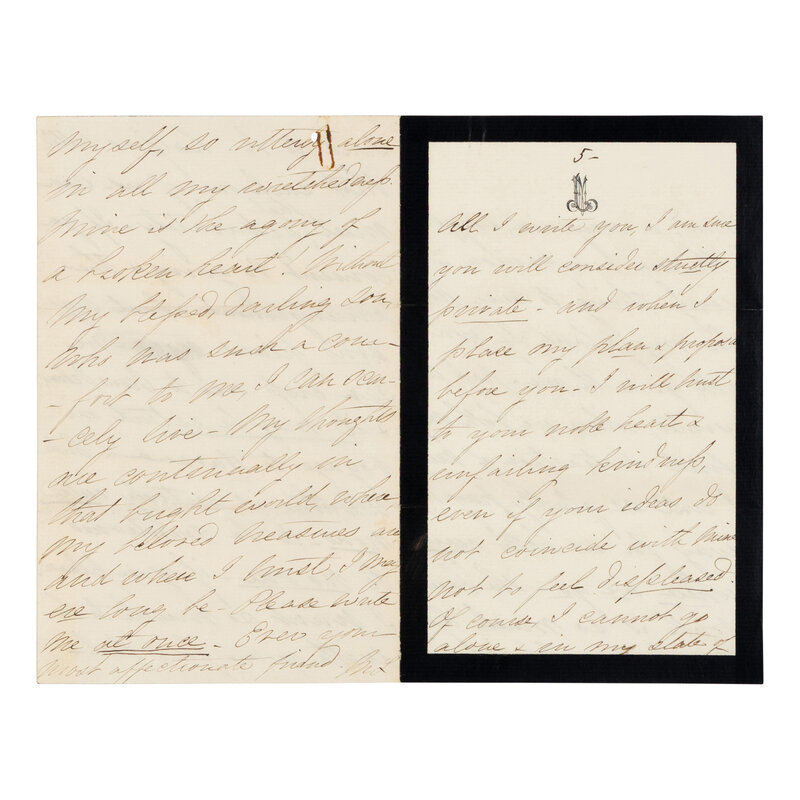 myself, so utterly alone
in all my wretchedness.
Mine is the agony of
a broken heart! Without
my blessed, darling son,
who was such a com-
-fort to me, I can scar-
-cely live - My thoughts
are continually in
that bright world, where
my beloved treasures are
and where I trust, I may
ere long be - Please write
me at once - Ever your
most affectionate friend.
5-
All I write you, I am sure
you will consider strictly
private - and when I
place my plan & proposal
before you - I will trust
to your noble heart &
unfailing kindness,
even if your ideas do
not coincide with mine
not to feel displeased.
Of course, I cannot go
alone & in my state of